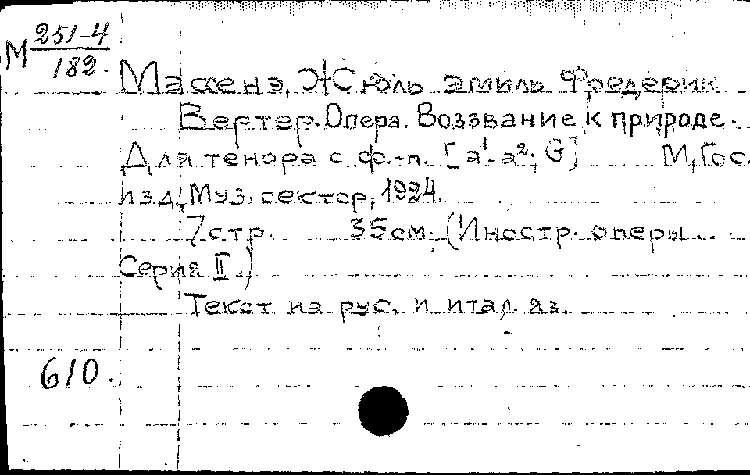 М 251-4
182.
Массенэ, Жюль Эмиль Фредерик
Вертер. Опера. Воззвание к природе.
Для тенора с ф.-п. [a¹-a²; G] М, Гос.
изд. Муз. сектор, 1924.
7 стр. 35 см. (Иностр. оперы.
Серия II.)
Текст на рус. и итал. яз.
610.